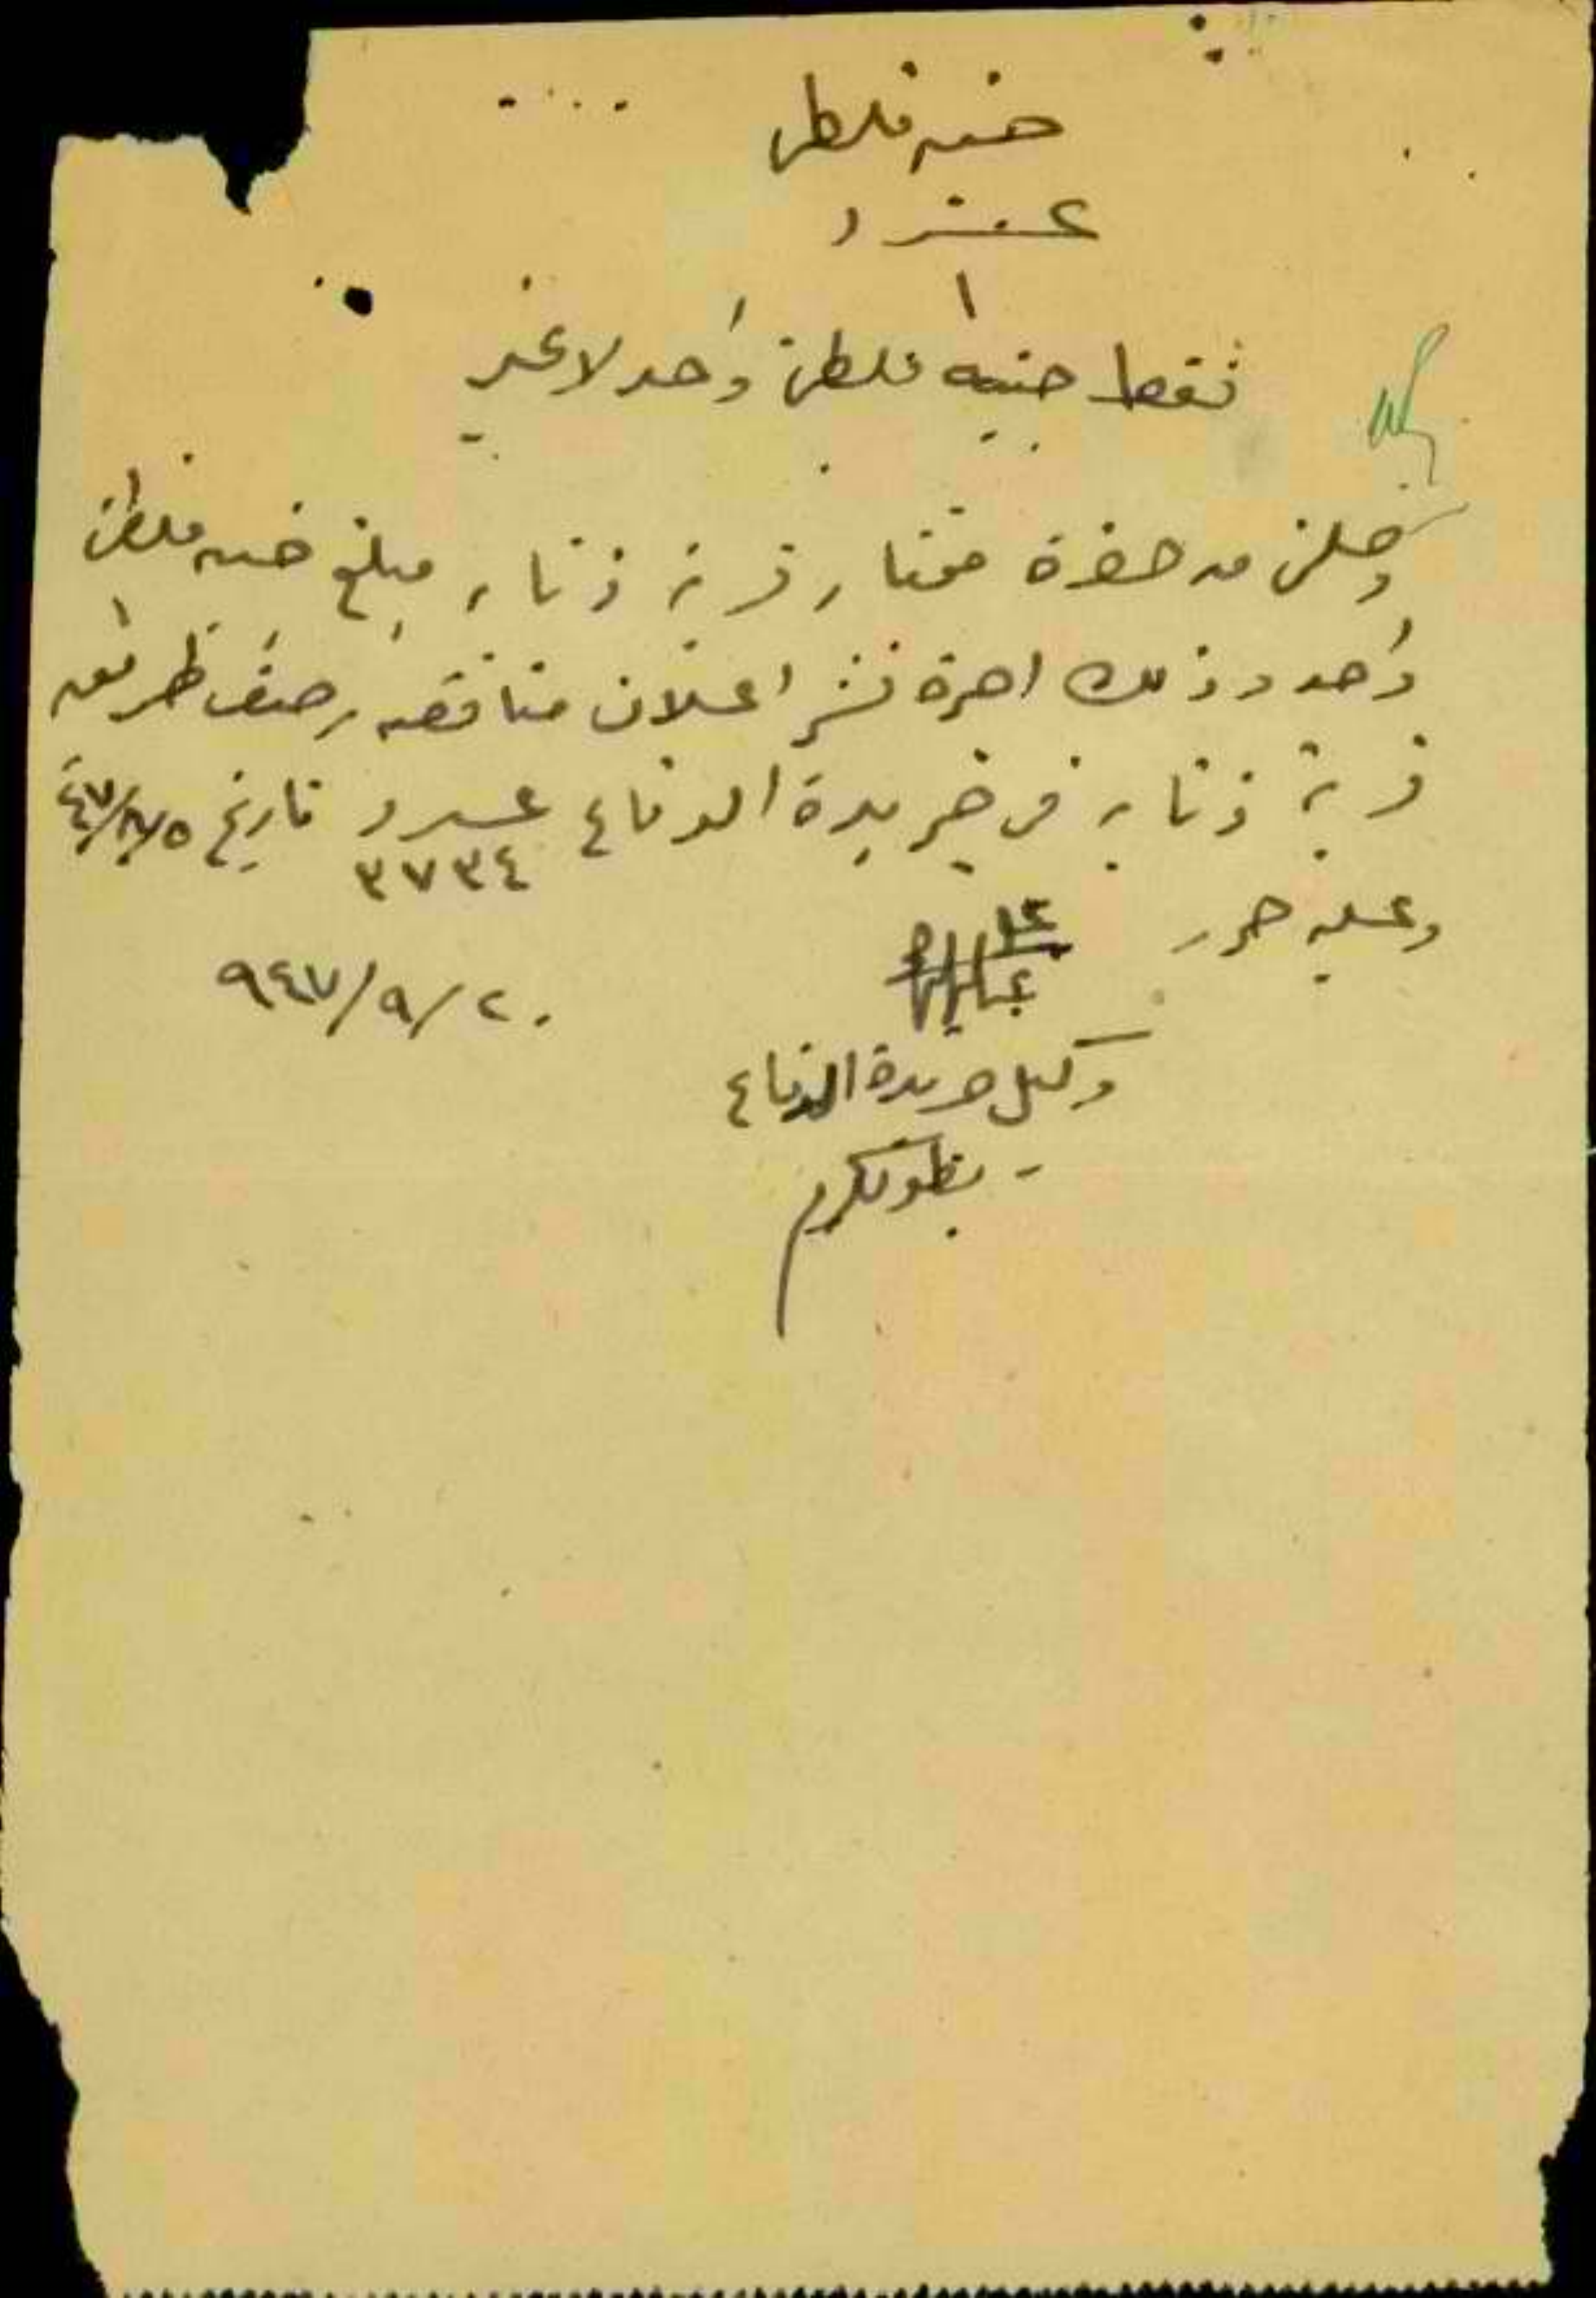 جنيه فلسطيني
عدد
١
فقط جنيه فلسطيني واحد لا غير
وصلني من حضرة مختار قرية زنابه مبلغ جنيه فلسطيني
واحد وذلك اجرة نشر اعلان مناقصه رصف طريق
قرية زنابه في جريدة الدفاع عدد ٣٧٣٤ تاريخ
وعليه حرر
٢٠/٩/٩٤٧
وكيل جريدة الدفاع
بطولكرم